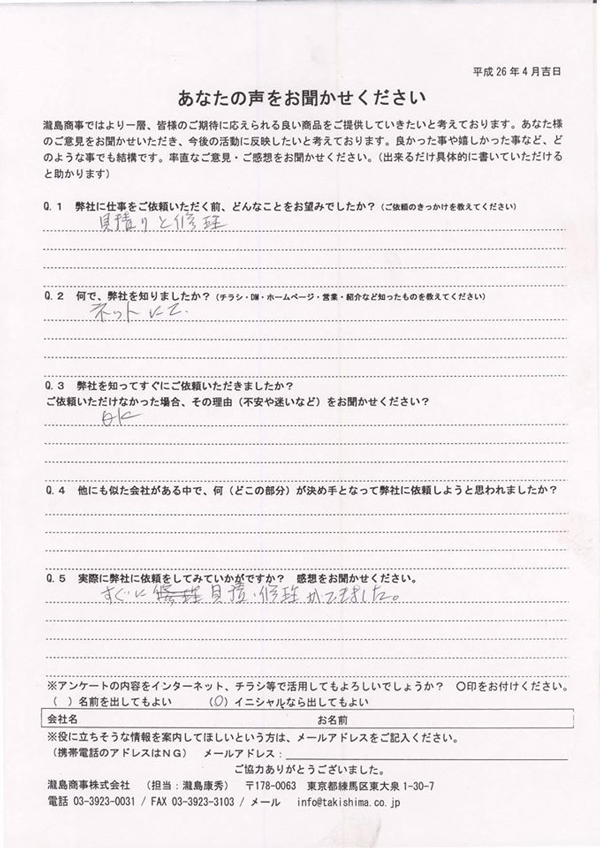 平成26年4月吉日
あなたの声をお聞かせください
瀧島商事ではより一層、皆様のご期待に応えられる良い商品をご提供していきたいと考えております。あなた様
のご意見をお聞かせいただき、今後の活動に反映したいと考えております。良かった事や嬉しかった事など、ど
のような事でも結構です。率直なご意見・ご感想をお聞かせください。（出来るだけ具体的に書いていただける
と助かります）
Q.1 弊社に仕事をご依頼いただく前、どんなことをお望みでしたか？（ご依頼のきっかけを教えてください）
見積りと修理
Q.2 何で、弊社を知りましたか？（チラシ・DM・ホームページ・営業・紹介など知ったものを教えてください）
ネットにて.
Q.3 弊社を知ってすぐにご依頼いただきましたか？
ご依頼いただけなかった場合、その理由（不安や迷いなど）をお聞かせください？
OK
Q.4 他にも似た会社がある中で、何（どこの部分）が決め手となって弊社に依頼しようと思われましたか？
Q.5 実際に弊社に依頼をしてみていかがですか？ 感想をお聞かせください。
すぐに修理見積・修理ができました。
※アンケートの内容をインターネット、チラシ等で活用してもよろしいでしょうか？ ○印をお付けください。
（ ）名前を出してもよい （○）イニシャルなら出してもよい
会社名 お名前
※役に立ちそうな情報を案内してほしいという方は、メールアドレスをご記入ください。
（携帯電話のアドレスはNG） メールアドレス：
ご協力ありがとうございました。
瀧島商事株式会社 （担当：瀧島康秀） 〒178-0063 東京都練馬区東大泉1-30-7
電話 03-3923-0031 / FAX 03-3923-3103 / メール info@takishima.co.jp